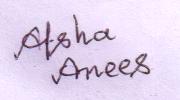 Afsha
Anees